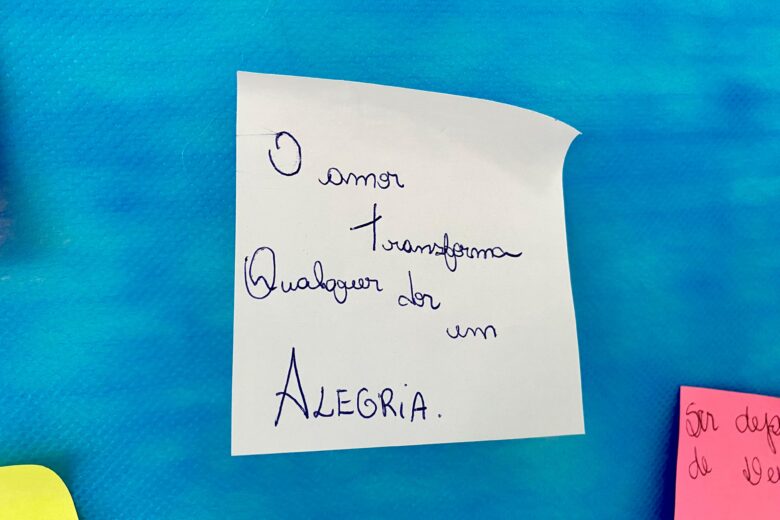 O amor
transforma
Qualquer dor
em
ALEGRiA.
Ser
de